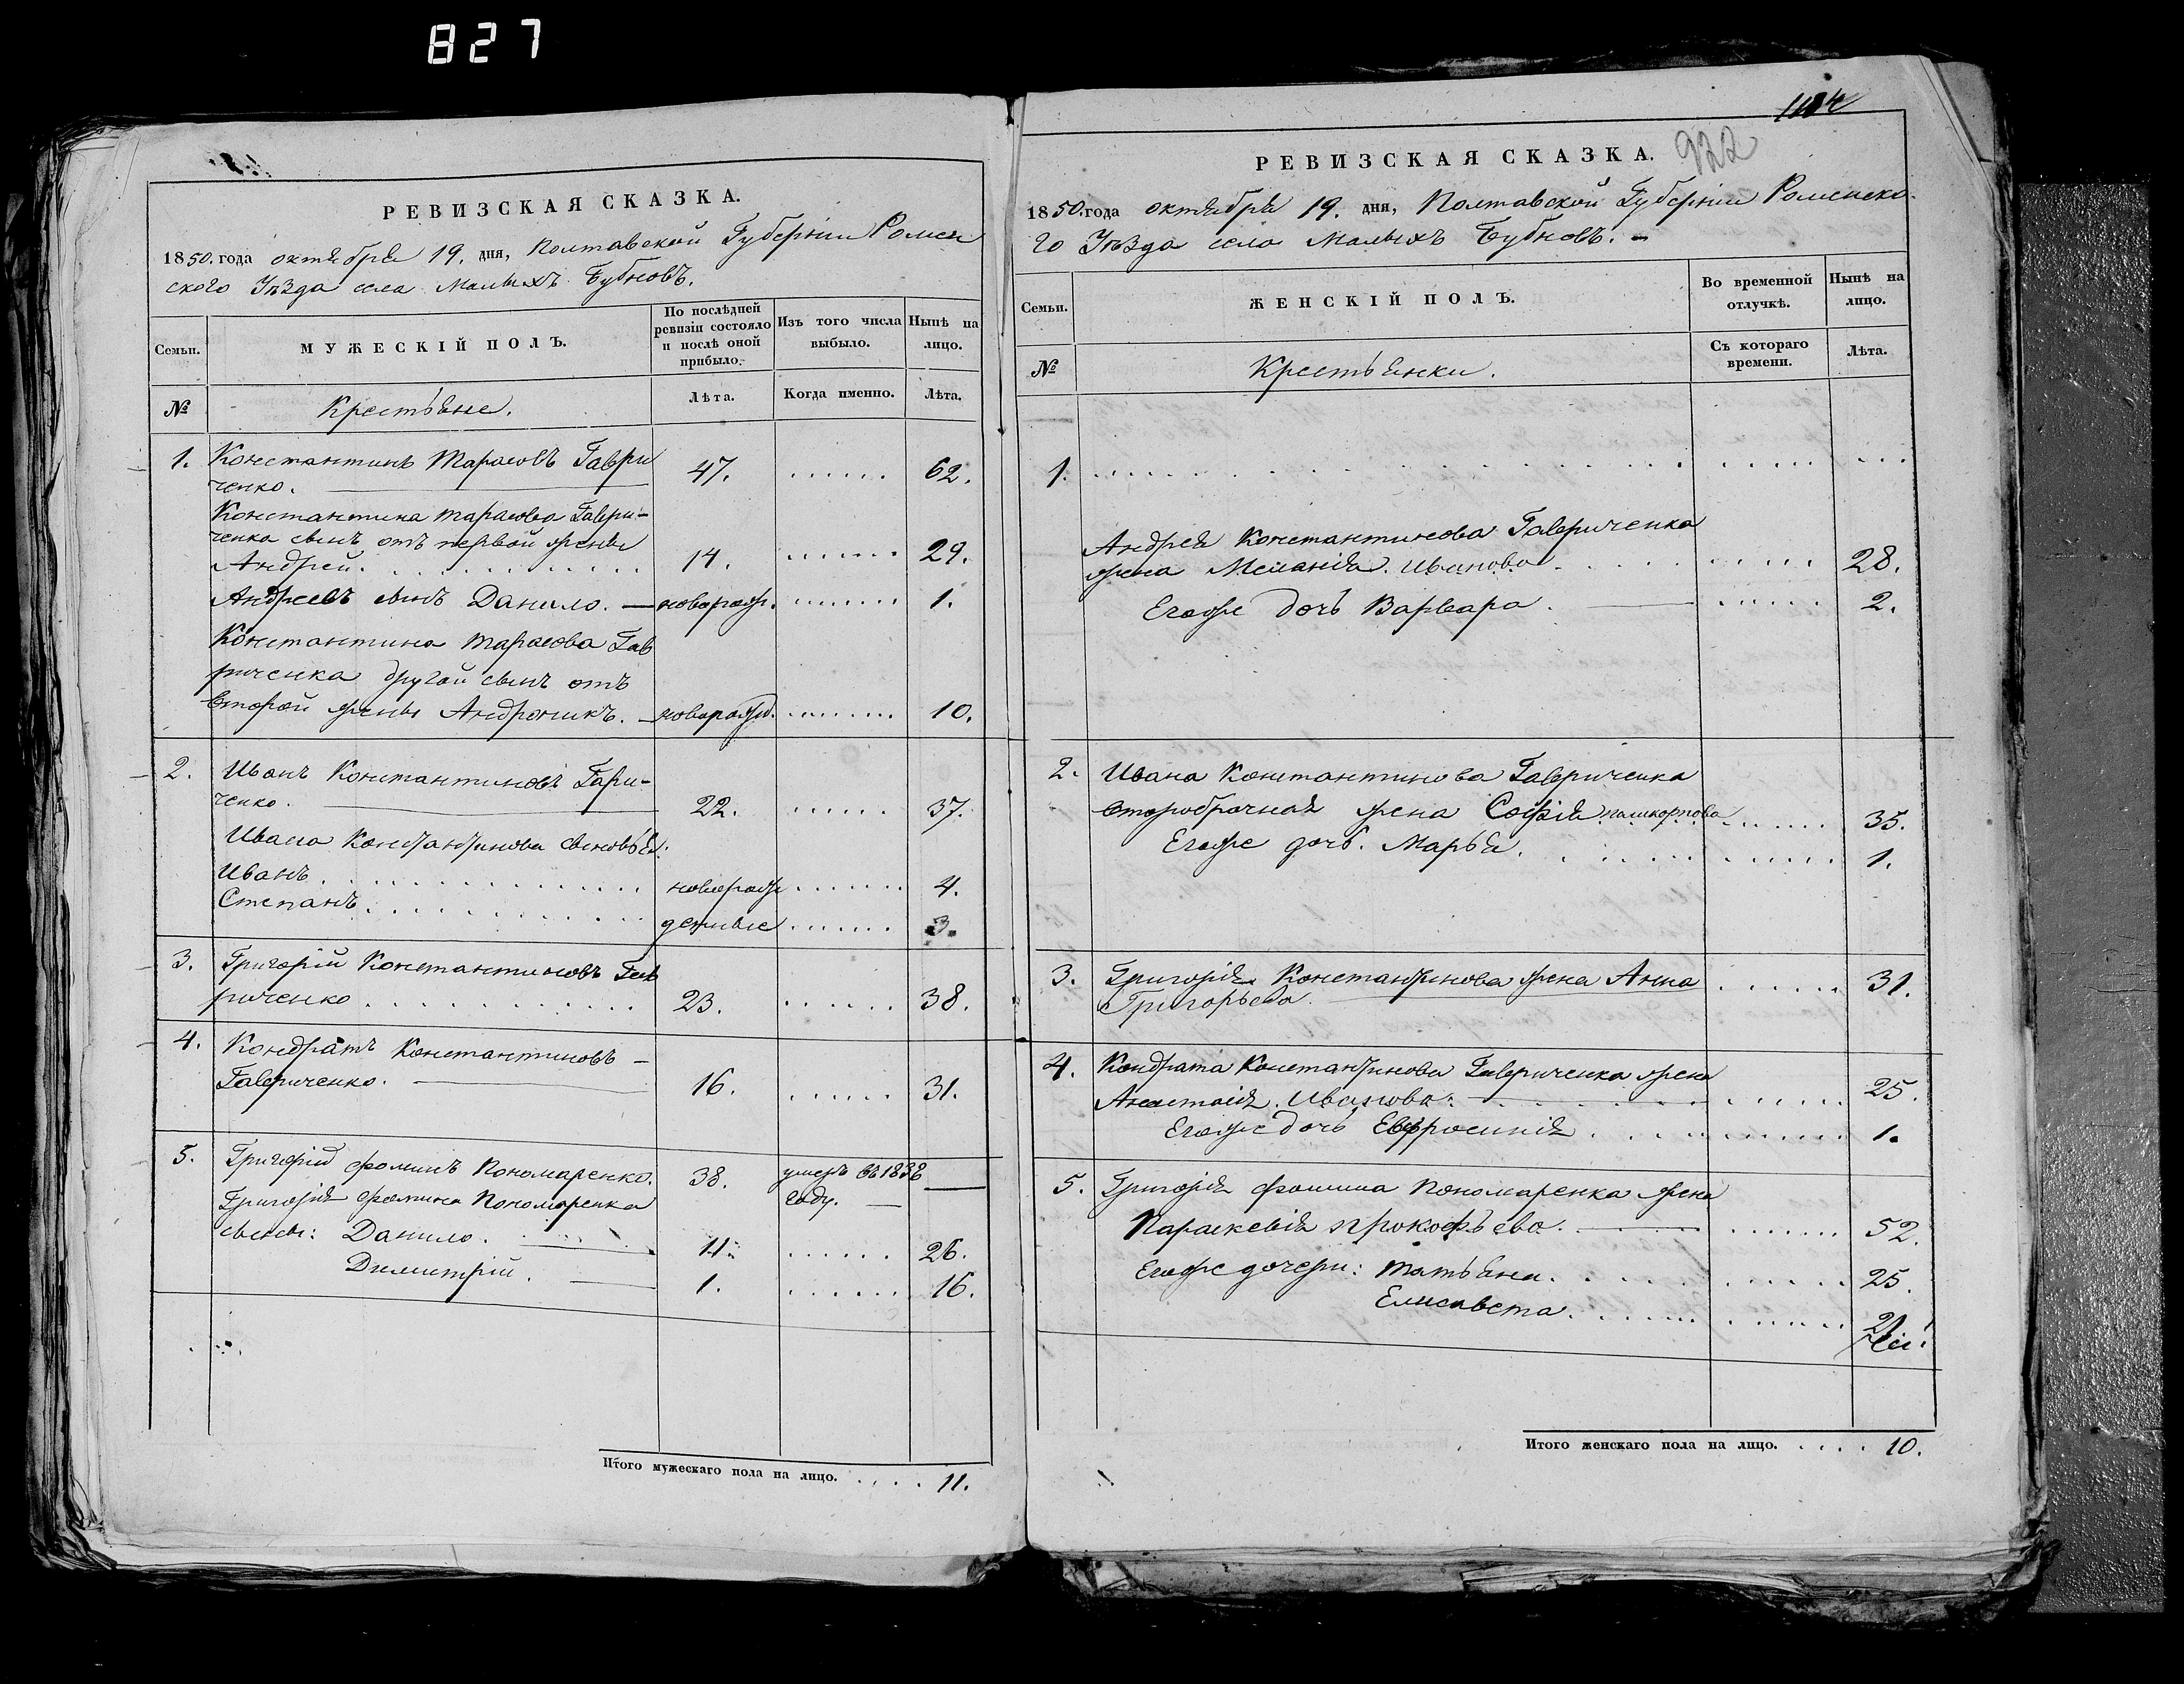 827
РЕВИЗСКАЯ СКАЗКА.
1850. года октября 19. дня, Полтавской Губернии Ромен
ского Уѣзда села Малыхъ Бубновъ.
Семьи.
МУЖЕСКІЙ ПОЛЪ.
По послѣдней ревизіи состояло и послѣ оной прибыло.
Изъ того числа выбыло.
Нынѣ на лицо.
№
Крестьяне.
Лѣта.
Когда именно.
Лѣта.
1. Константинъ Тарасовъ Гаври 47. 62.
ченко.
Константина Тарасова Гаври-
ченка сынъ отъ первой жены
Андрей. 14. 29.
Андреевъ сынъ Данило. — новорож. 1.
Константина Тарасова Гав
риченка другой сынъ отъ
второй жены Андроникъ. — новорожд. 10.
2. Иванъ Константиновъ Гаври-
ченко. 22. 37.
Ивана Константинова сыновья:
Иванъ. новорож 4.
Степанъ. денные 3.
3. Григорій Константиновъ Гав
риченко 23. 38.
4. Кондратъ Константиновъ —
Гавриченко. 16. 31.
5. Григорій Фоминъ Пономаренко. 38. умеръ въ 1838
Григорія Фомина Пономаренка году. —
сыны: Данило. 11. 26.
Димитрій. 1. 16.
Итого мужескаго пола на лицо. 11.
922
РЕВИЗСКАЯ СКАЗКА.
1850. года октября 19. дня, Полтавской Губерніи Роменско-
го Уѣзда села Малыхъ Бубновъ. —
Семьи.
ЖЕНСКІЙ ПОЛЪ.
Во временной отлучкѣ.
Нынѣ на лицо.
№
Крестьянки.
Съ котораго времени.
Лѣта.
1.
Андрея Константинова Гавриченка
жена Меланія Иванова. 28.
Егоже дочь Варвара. 2.
2. Ивана Константинова Гавриченка
второбрачная жена Софія 35.
Егоже дочь Марья. 1.
3. Григорія Константинова жена Анна 31.
Григорьева.
4. Кондрата Константинова Гавриченка жена
Анастасія Иванова. 25.
Егоже дочь Евфросинія 1.
5. Григорія Фомина Пономаренка жена
Параскевія Прокофьева. 52.
Егоже дочери: Татьяна. 25.
Елисавета. 21
Итого женскаго пола на лицо. 10.